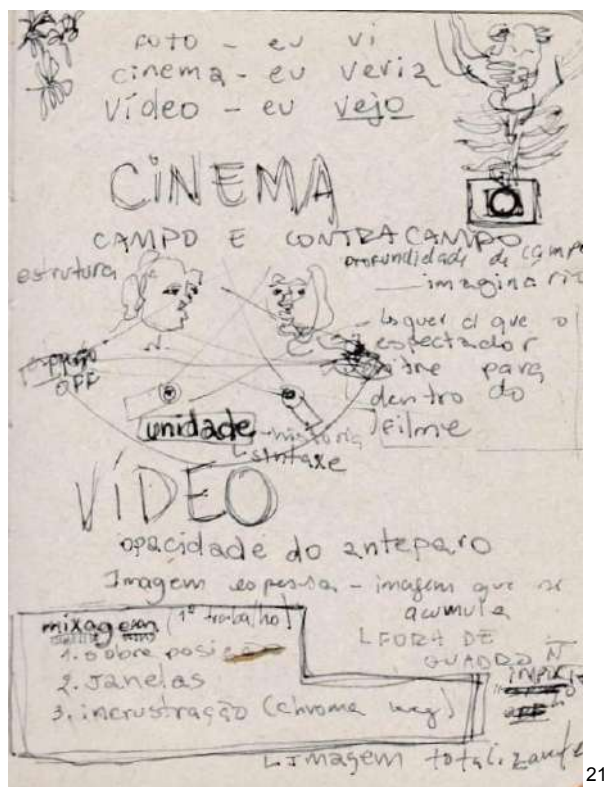 FOTO - eu vi
cinema - eu veria
vídeo - eu vejo
CINEMA
CAMPO E CONTRACAMPO
profundidade de campo
estrutura
imaginario
que o
espectador
entre para
dentro do
filme
OFF
unidade - história
sintaxe
VÍDEO
opacidade do anteparo
Imagém espessa - imagem que se
acumula
mixagem (1º trabalho)
FORA DE
QUADRO Ñ
1. sobre posição
2. Janelas
3. incrustração (chroma key)
Imagem totalizante
21